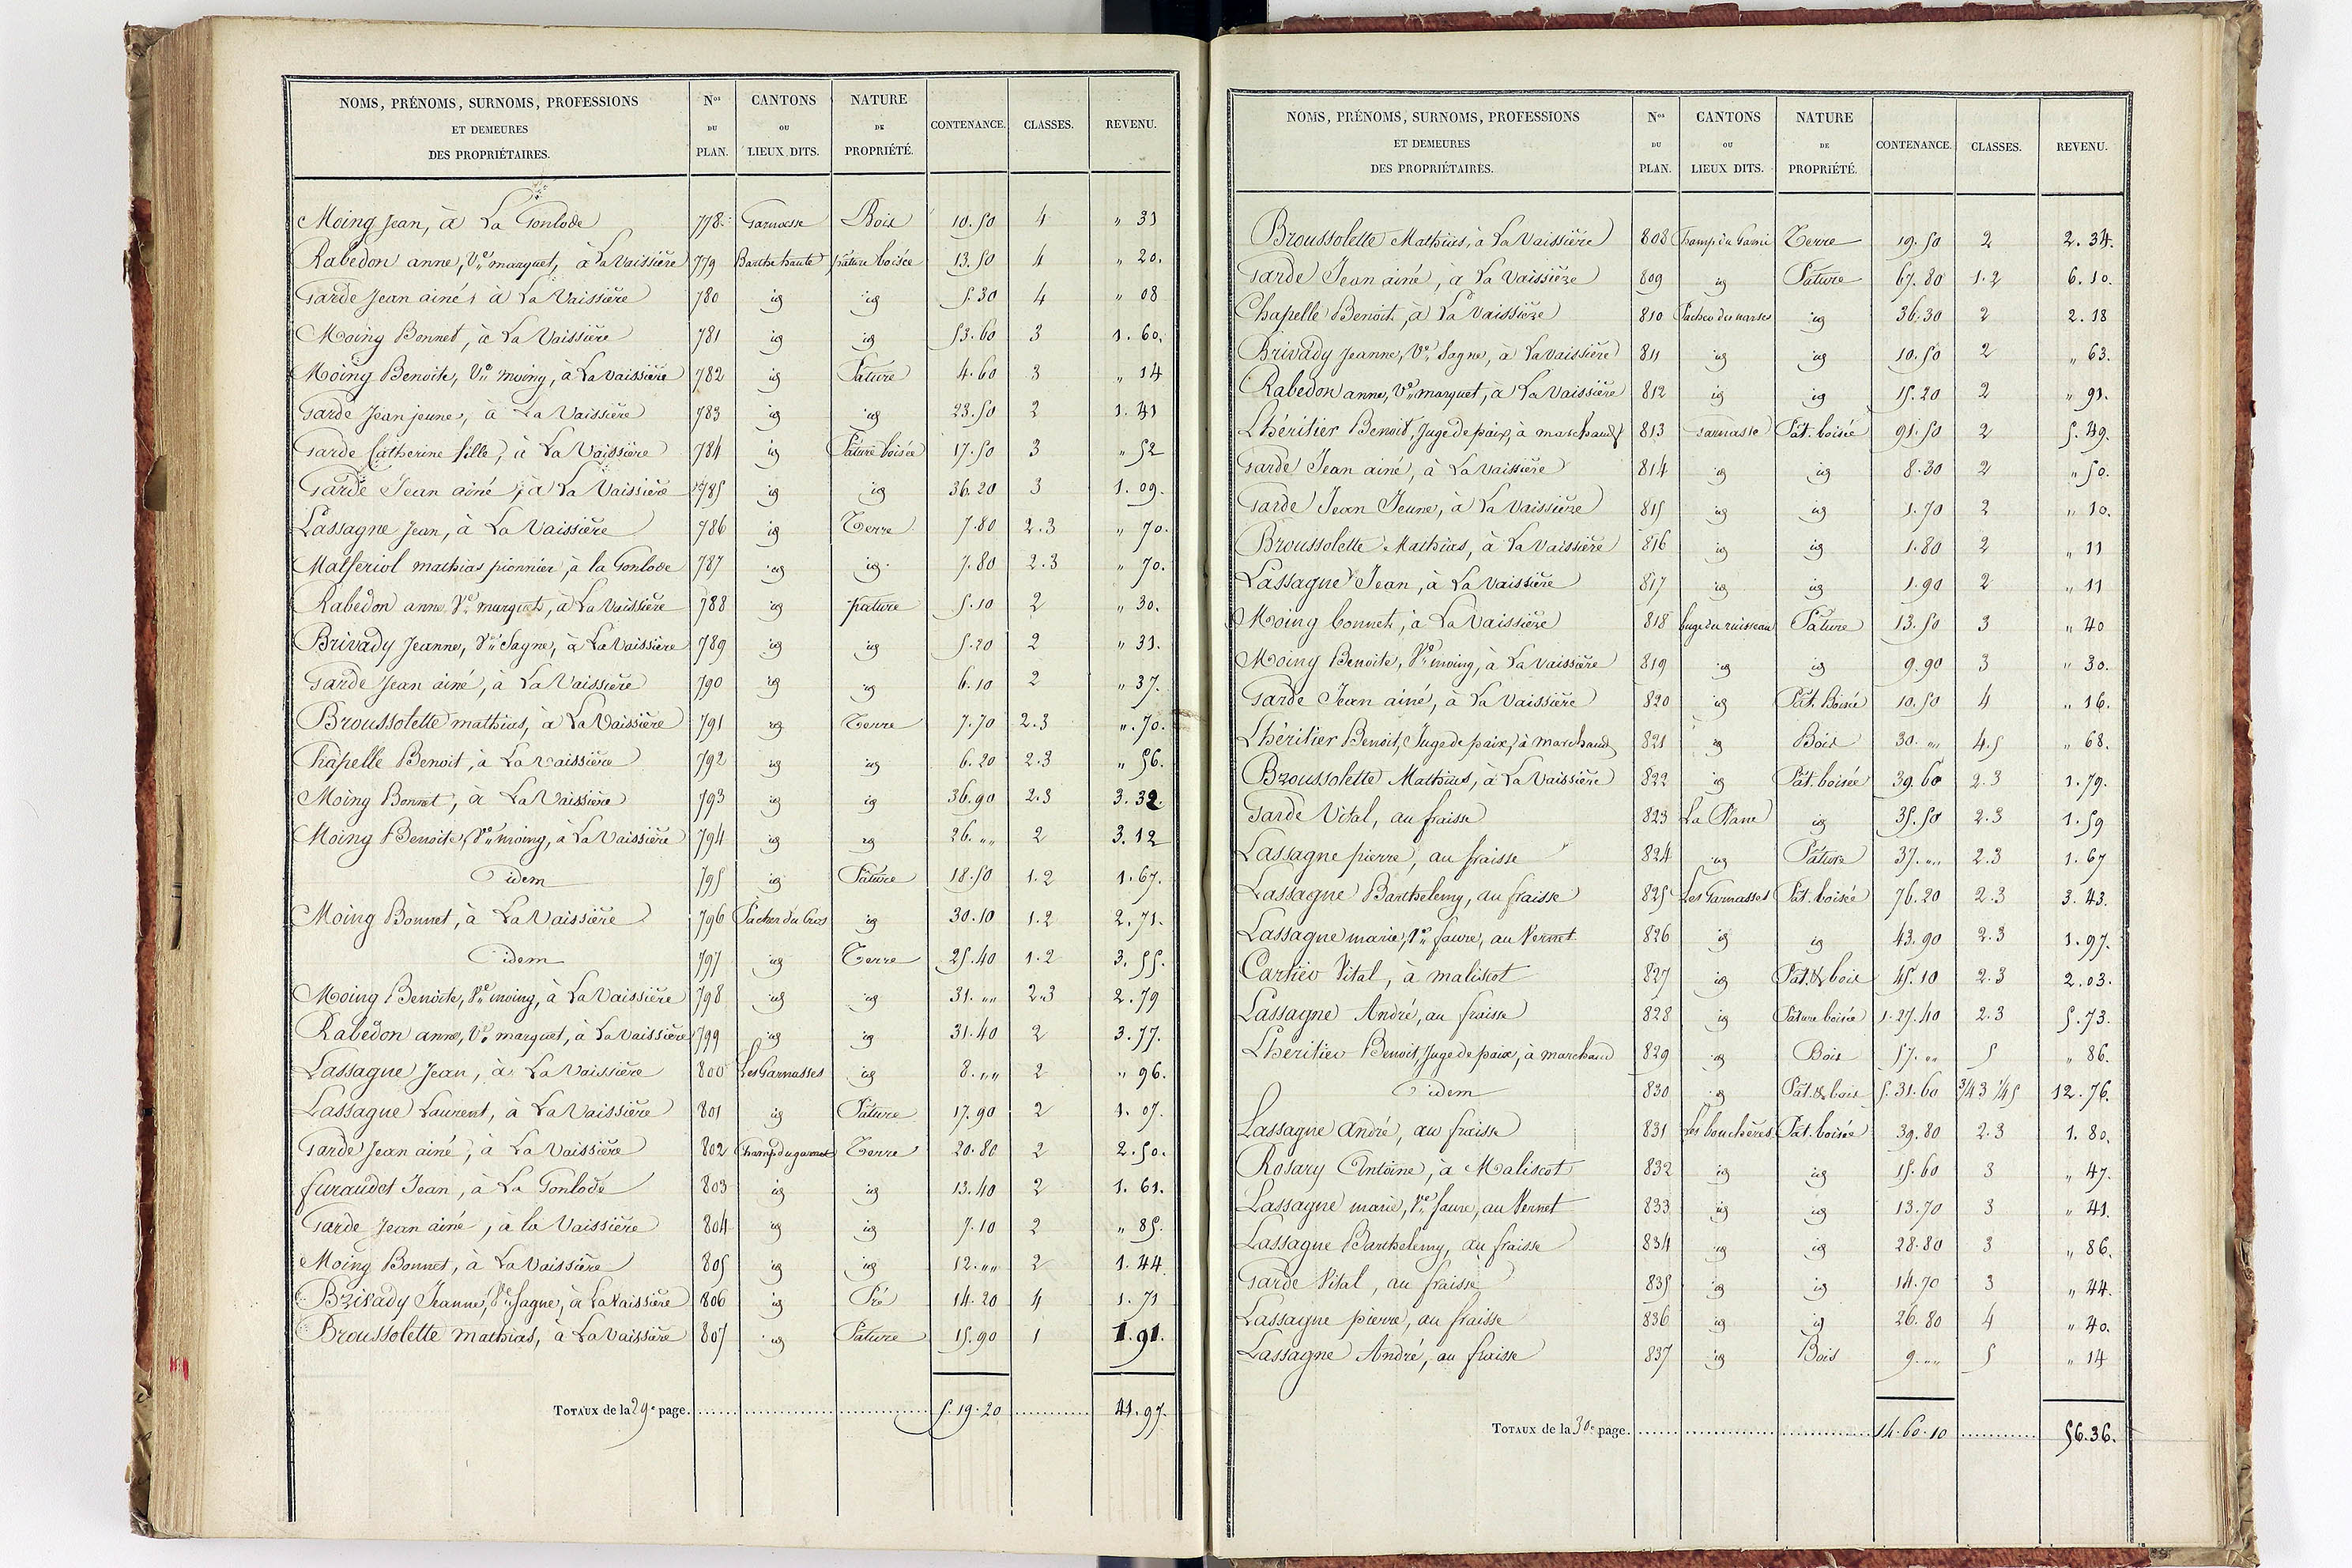 NOMS, PRÉNOMS, SURNOMS, PROFESSIONS ET DEMEURES DES PROPRIÉTAIRES. Nos DU PLAN. CANTONS OU LIEUX DITS. NATURE DE PROPRIÉTÉ. CONTENANCE. CLASSES. REVENU.
Moing Jean, à La Gonlode 778 Garnasse Bois 10.50 4 " 31
Rabedon anne, Ve marquet, à La Vaissière 779 Barthe haute pâture boisée 13.50 4 " 20.
Garde Jean ainé, à La Vaissière 780 id id 5.30 4 " 08
Moing Bonnet, à La Vaissière 781 id id 53.60 3 1.60.
Moing Benoite, Ve moing, à La Vaissière 782 id Pature 4.60 3 " 14
Garde Jean jeune, à La Vaissière 783 id id 23.50 2 1.41
Garde Catherine fille, à La Vaissière 784 id Pature boisée 17.50 3 " 52
Garde Jean ainé, à La Vaissière 785 id id 36.20 3 1.09.
Lassagne Jean, à La Vaissière 786 id Terre 7.80 2.3 " 70.
Malferiol mathias pionnier, à la Gonlode 787 id id 7.80 2.3 " 70.
Rabedon anne, Ve marquet, à La Vaissière 788 id pature 5.10 2 " 30.
Brivady Jeanne, Ve Sagne, à La Vaissière 789 id id 5.20 2 " 31.
Garde Jean ainé, à La Vaissière 790 id id 6.10 2 " 37.
Broussolette mathias, à La Vaissière 791 id Terre 7.70 2.3 " 70.
Chapelle Benoit, à La Vaissière 792 id id 6.20 2.3 " 56.
Moing Bonnet, à La Vaissière 793 id id 36.90 2.3 3.32.
Moing Benoite, Ve moing, à La Vaissière 794 id id 26. " 2 3.12
Idem 795 id Pâture 18.50 1.2 1.67.
Moing Bonnet, à La Vaissière 796 Pacher du Cros id 30.10 1.2 2.71.
Idem 797 id Terre 25.40 1.2 3.55.
Moing Benoite, Ve moing, à La Vaissière 798 id id 31. " 2.3 2.79
Rabedon anne, Ve marquet, à La Vaissière 799 id id 31.40 2 3.77.
Lassagne Jean, à La Vaissière 800 Les Garnasses id 8. " 2 " 96.
Lassagne Laurent, à La Vaissière 801 id Pâture 17.90 2 1.07.
Garde Jean ainé, à La Vaissière 802 Champ du garnet Terre 20.80 2 2.50.
furaudet Jean, à La Gonlode 803 id id 13.40 2 1.61.
Garde Jean ainé, à la Vaissière 804 id id 7.10 2 " 85.
Moing Bonnet, à La Vaissière 805 id id 12. " 2 1.44
Brivady Jeanne, Ve Sagne, à La Vaissière 806 id Pré 14.20 4 1.71
Broussolette mathias, à La Vaissière 807 id Pature 15.90 1 1.91.
TOTAUX de la 29e page. 5.19.20 41.97.
NOMS, PRÉNOMS, SURNOMS, PROFESSIONS ET DEMEURES DES PROPRIÉTAIRES. Nos DU PLAN. CANTONS OU LIEUX DITS. NATURE DE PROPRIÉTÉ. CONTENANCE. CLASSES. REVENU.
Broussolette Mathias, à La Vaissière 808 Champ du Garni Terre 19.50 2 2.34.
Garde Jean ainé, à La Vaissière 809 id Pâture 67.80 1.2 6.10.
Chapelle Benoit, à La Vaissière 810 id 36.30 2 2.18
Brivady Jeanne, Ve Sagne, à La Vaissière 811 id id 10.50 2 " 63.
Rabedon anne, Ve marquet, à La Vaissière 812 id id 15.20 2 " 91.
Lhéritier Benoit, Juge de paix, à marchaud 813 Garnasse Pât. boisée 91.50 2 5.49.
Garde Jean ainé, à La Vaissière 814 id id 8.30 2 " 50.
Garde Jean Jeune, à La Vaissière 815 id id 1.70 2 " 10.
Broussolette Mathias, à La Vaissière 816 id id 1.80 2 " 11
Lassagne Jean, à La Vaissière 817 id id 1.90 2 " 11
Moing bonnet, à La Vaissière 818 suge du ruisseau Pâture 13.50 3 " 40
Moing Benoite, Ve moing, à La Vaissière 819 id id 9.90 3 " 30.
Garde Jean ainé, à La Vaissière 820 id Pât. Boisée 10.50 4 " 16.
Lhéritier Benoit, Juge de paix, à marchaud 821 id Bois 30. " 4.5 " 68.
Broussolette Mathias, à La Vaissière 822 id Pât. boisée 39.60 2.3 1.79.
Garde Vital, au fraisse 823 La Plane id 35.50 2.3 1.59
Lassagne pierre, au fraisse 824 id Pâture 37. " 2.3 1.67
Lassagne Barthelemy, au fraisse 825 Les Garnasses Pât. boisée 76.20 2.3 3.43.
Lassagne marie, Ve faure, au Vernet 826 id id 43.90 2.3 1.97.
Cartier Vital, à maliscot 827 id Pât. & bois 45.10 2.3 2.03.
Lassagne André, au fraisse 828 id Pâture boisée 1.27.40 2.3 5.73.
Lhéritier Benoit, Juge de paix, à marchaud 829 id Bois 57. " 5 " 86.
Idem 830 id Pât. & bois 5.31.60 3/4 3 1/4 5 12.76.
Lassagne André, au fraisse 831 Les bouchères Pât. boisée 39.80 2.3 1.80.
Rosary Antoine, à Maliscot 832 id id 15.60 3 " 47.
Lassagne marie, Ve faure, au Vernet 833 id id 13.70 3 " 41.
Lassagne Barthelemy, au fraisse 834 id id 28.80 3 " 86.
Garde Vital, au fraisse 835 id id 14.70 3 " 44.
Lassagne pierre, au fraisse 836 id id 26.80 4 " 40.
Lassagne André, au fraisse 837 id Bois 9. " 5 " 14
TOTAUX de la 30e page. 14.60.10 56.36.